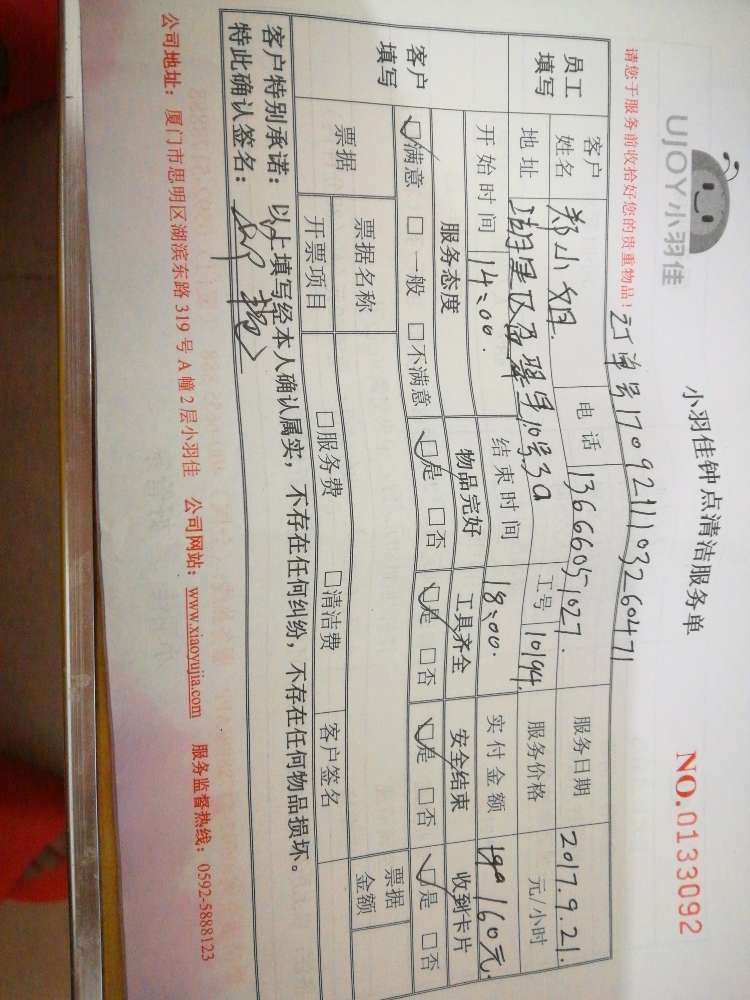 UJOY小羽佳
小羽佳钟点清洁服务单
NO.0133092
请您于服务前收拾好您的贵重物品!
订单号17092111103260471
员工填写
客户姓名 郑小姐 电话 13666051027. 服务日期 2017.9.21.
地址 湖里区 10号3a 工号 10194. 服务价格 元/小时
开始时间 14:00. 结束时间 18:00. 实付金额 160元.
客户填写
服务态度 物品完好 工具齐全 安全结束 收到卡片
☑满意 □一般 □不满意 ☑是 □否 ☑是 □否 ☑是 □否 ☑是 □否
票据 票据名称 票据金额
开票项目 □服务费 □清洁费 客户签名
客户特别承诺:以上填写经本人确认属实,不存在任何纠纷,不存在任何物品损坏。
特此确认签名:
公司地址:厦门市思明区湖滨东路319号A幢2层小羽佳 公司网站:www.xiaoyujia.com 服务监督热线:0592-5888123